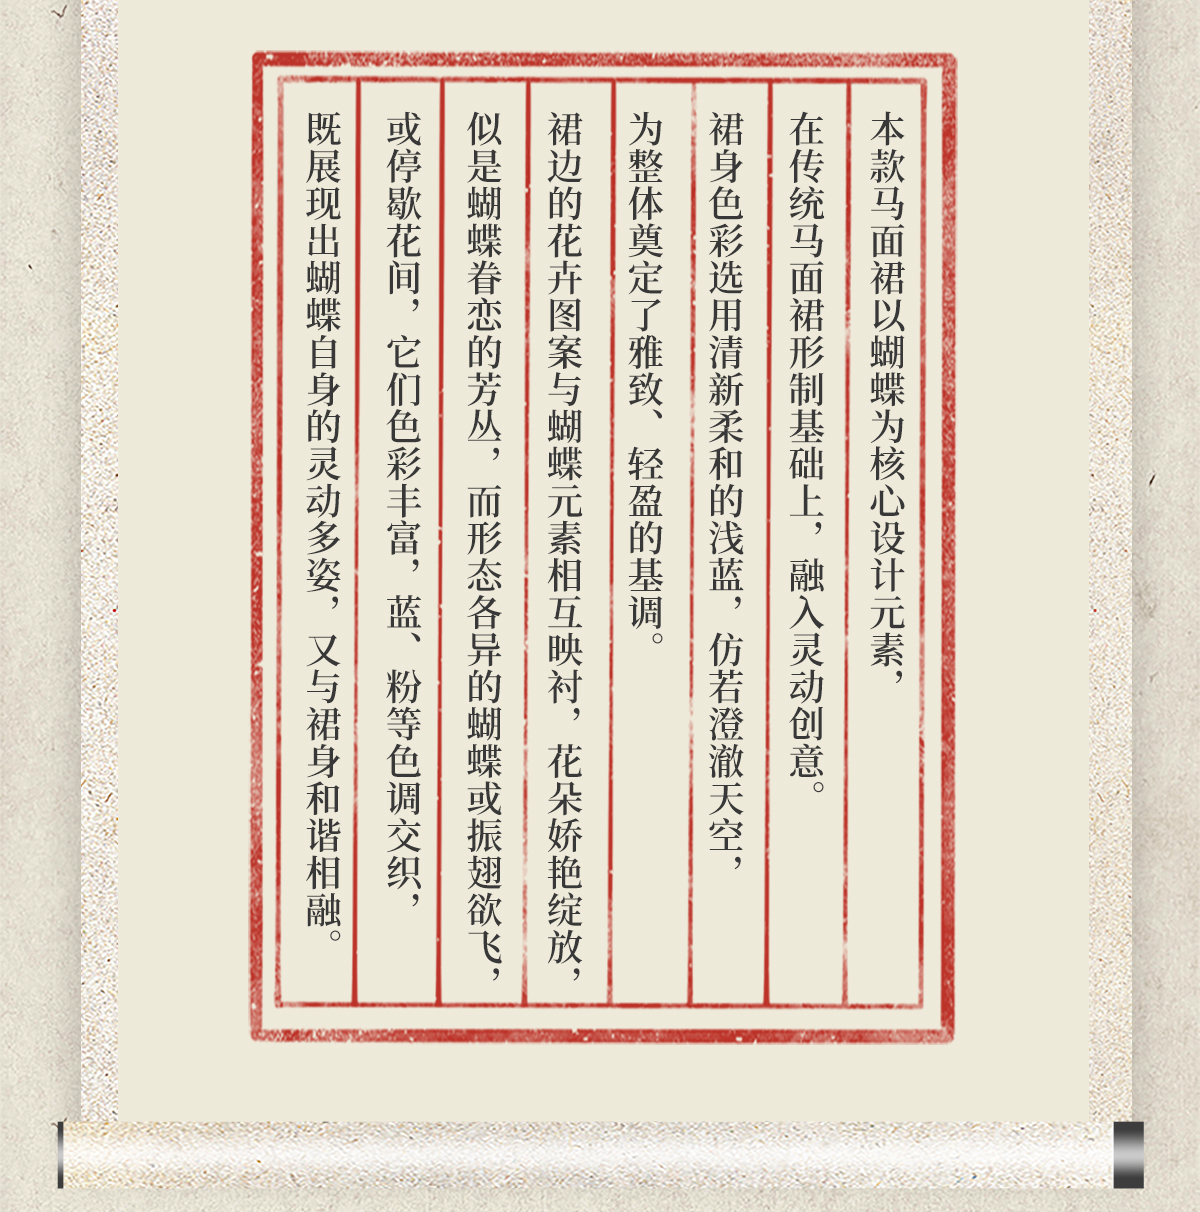 本款马面裙以蝴蝶为核心设计元素，
在传统马面裙形制基础上，融入灵动创意。
裙身色彩选用清新柔和的浅蓝，仿若澄澈天空，
为整体奠定了雅致、轻盈的基调。
裙边的花卉图案与蝴蝶元素相互映衬，花朵娇艳绽放，
似是蝴蝶眷恋的芳丛，而形态各异的蝴蝶或振翅欲飞，
或停歇花间，它们色彩丰富，蓝、粉等色调交织，
既展现出蝴蝶自身的灵动多姿，又与裙身和谐相融。